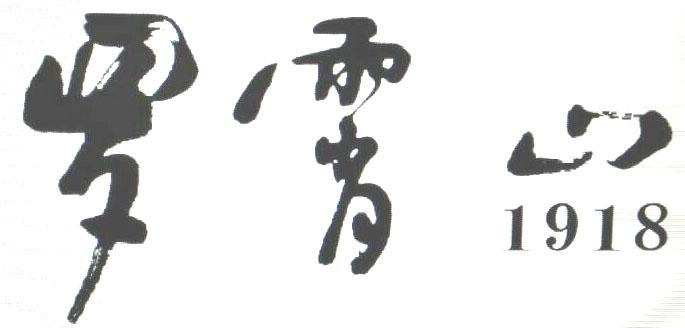 罗霄山
1918